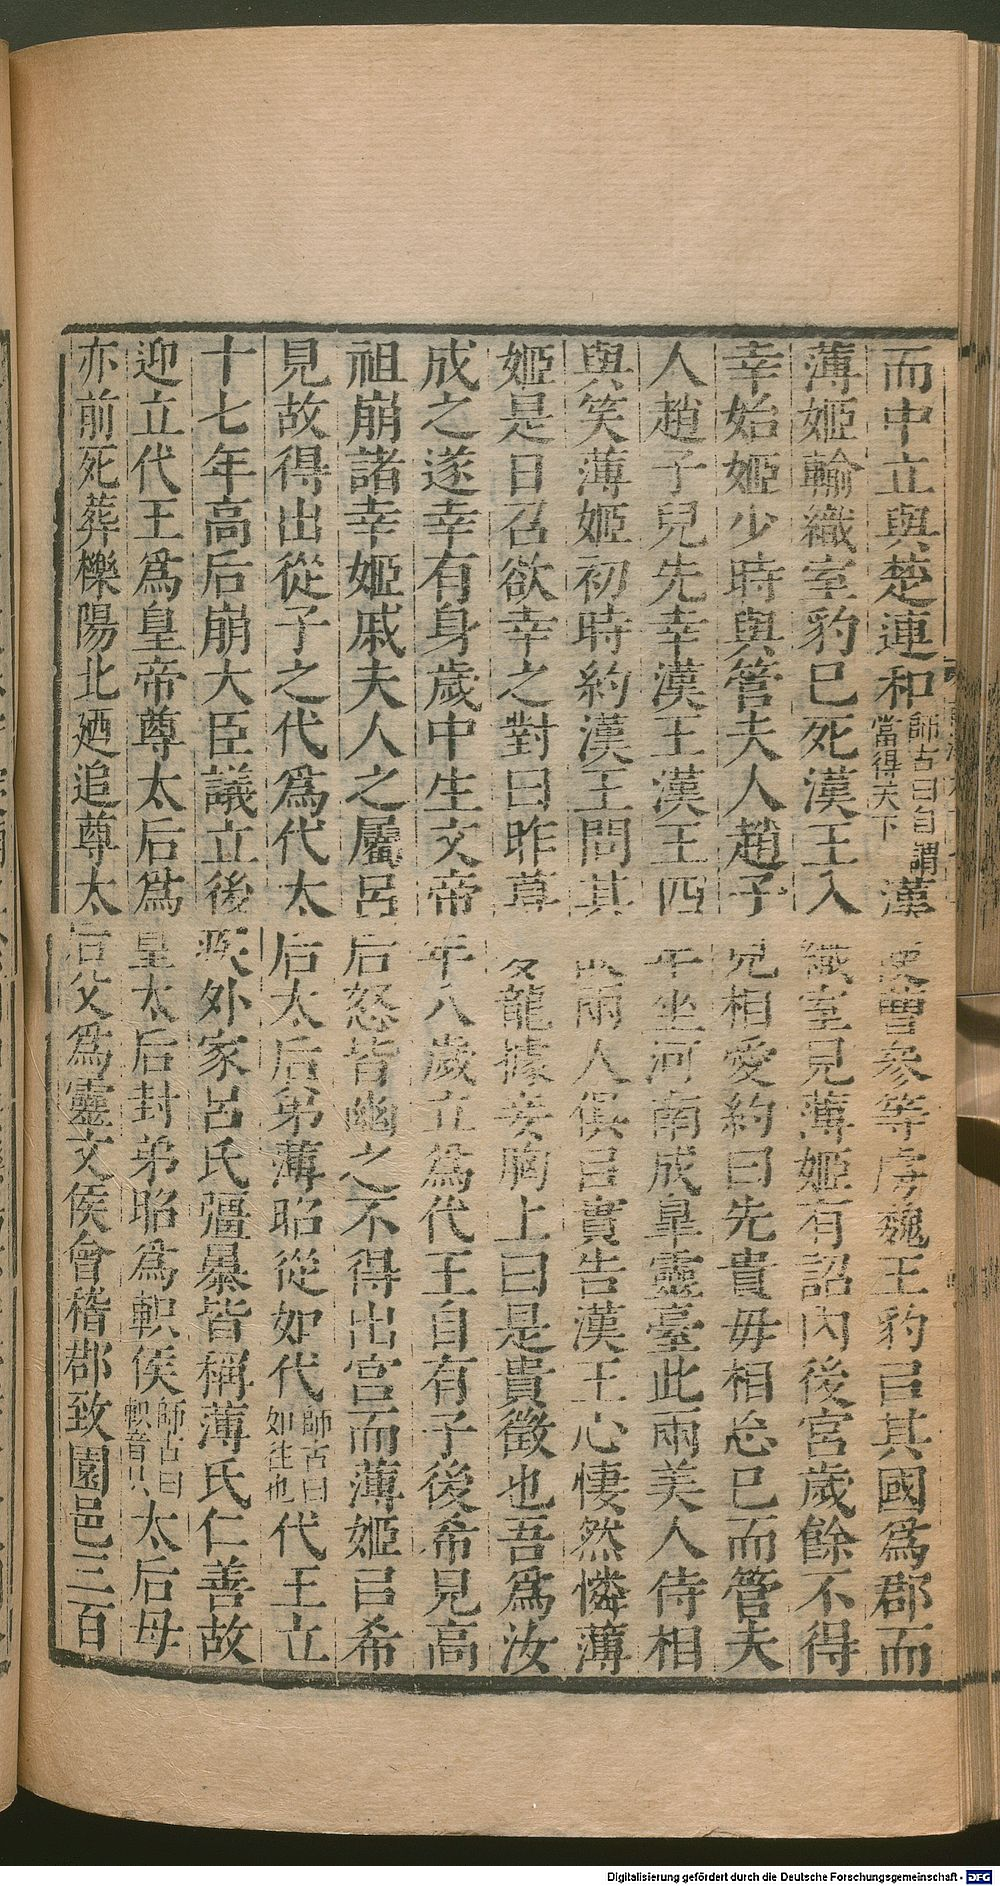 而中立與楚連和師古曰自謂當得天下漢使曹參等虜魏王豹㠯其國爲郡而
薄姬輸織室豹已死漢王入織室見薄姬有詔內後宮歲餘不得
幸始姬少時與管夫人趙子兒相愛約曰先貴毋相忘已而管夫
人趙子兒先幸漢王漢王四年坐河南成皐靈臺此兩美人侍相
與笑薄姬初時約漢王問其故兩人俱㠯實告漢王心悽然憐薄
姬是日召欲幸之對曰昨暮夢龍據妾胷上曰是貴徵也吾爲汝
成之遂幸有身歲中生文帝年八歲立爲代王自有子後希見高
祖崩諸幸姬戚夫人之屬呂后怒皆幽之不得出宮而薄姬㠯希
見故得出從子之代爲代太后太后弟薄昭從如代師古曰如往也代王立
十七年高后崩大臣議立後疾外家呂氏彊暴皆稱薄氏仁善故
迎立代王爲皇帝尊太后爲皇太后封弟昭爲軹侯師古曰軹音只太后母
亦前死葬櫟陽北廼追尊太后父爲靈文侯會稽郡致園邑三百
Digitalisierung gefördert durch die Deutsche Forschungsgemeinschaft - DFG